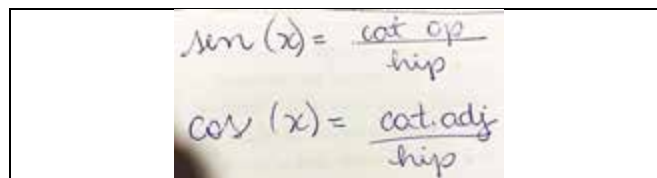 sen (x) = cat op
hip
cos (x) = cat. adj
hip